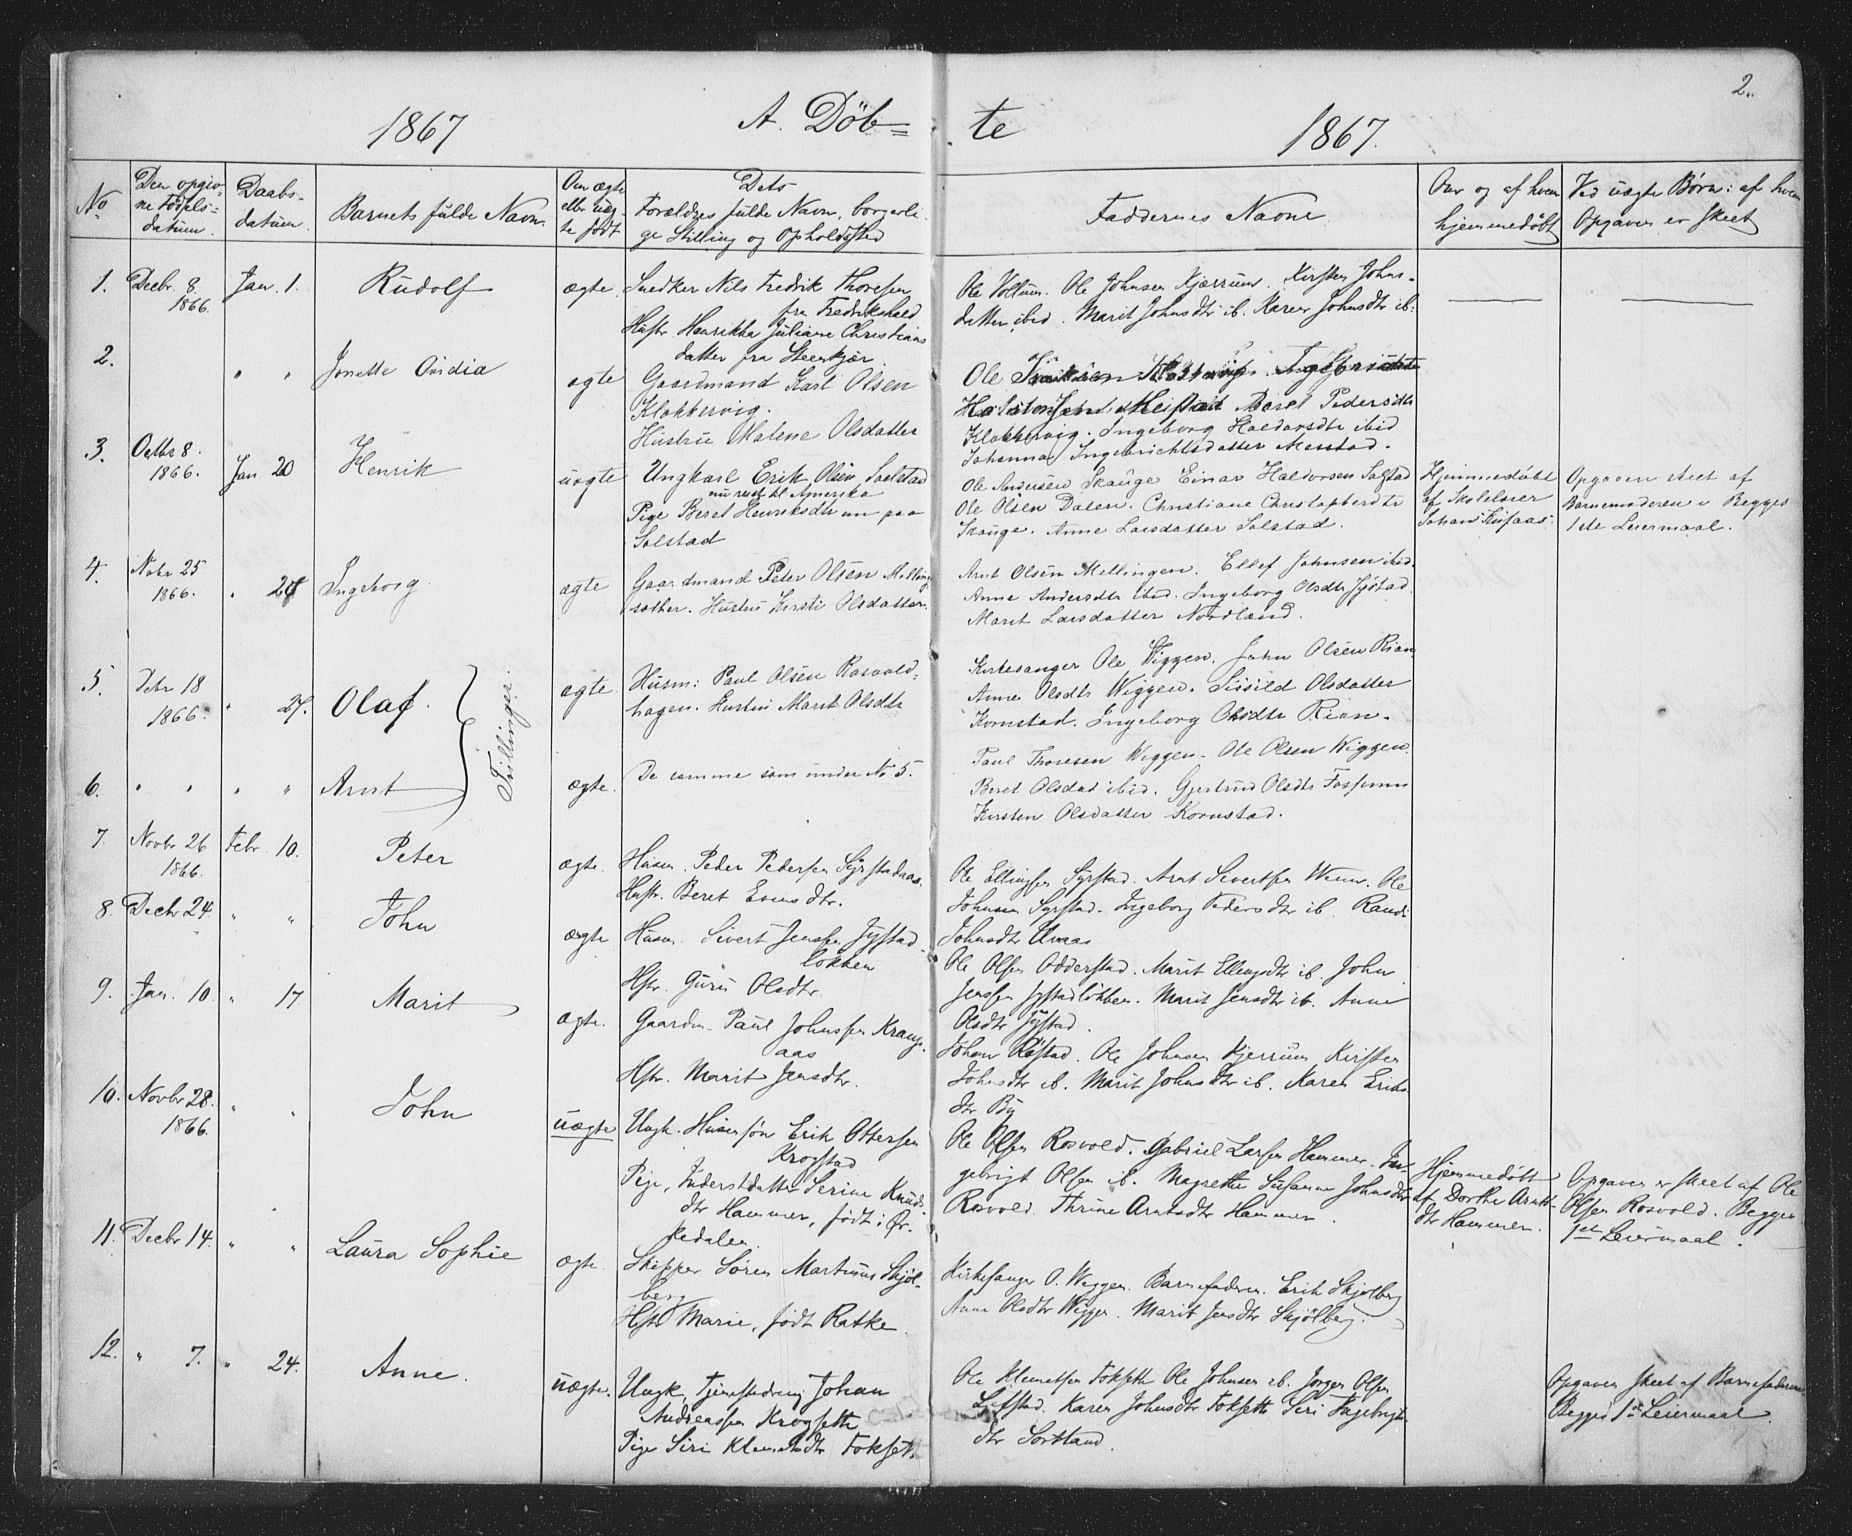 2.
1867 A. Döb= te 1867.
No
Den opgiv-
ne Födsels-
datum.
Daabs-
datum.
Barnets fulde Navn.
Om ægte
eller uæg-
te født
Dets
Forældres fulde Navn, borgerli-
ge Stilling og Opholdssted
Faddernes Navne.
Om og af hvem
hjemmedøbt
Ved uægte Børn: af hvem
Opgaven er skeet
1. Decbr. 8. 1866. Jan. 1. Rudolf ægte.
Snedker Nils Fredrik Thoresen
fra Fredrikshald
Hustr. Henrikka Juliane Christians
datter fra Steenkjær.
Ole Vollum. Ole Johnsen Kjærrum. Kirsten Johns-
datter ibid. Marit Johnsdtr ib. Karen Johnsdtr ib.
2. " " Jonette Ovidia ægte
Gaardmand Karl Olsen
Klokkervig.
Hustru Malene Olsdatter
Ole
Beret Pedersdtr
Klokkervig. Ingeborg Haldorsdtr ibid
Johanna Ingebrichtsdatter Messtad.
3. Octbr 8. 1866. Jan 20 Henrik uægte
Ungkarl Erik Olsen Solstad
nu reist til Amerika
Pige Beret Henriksdtr nu paa
Solstad
Ole Andersen Skauge Einar Haldorsen Solstad
Ole Olsen Dalen. Christiane Christopherdtr
Skauge. Anne Larsdatter Solstad.
Hjemmedøbt
af Skolelærer
Johan
Opgaven skeet af
Barnemoderen Begges
1ste Leiermaal.
4. Novbr 25 1866. " 27 Ingeborg ægte
Gaardmand Peter Olsen Melling-
sæther. Hustru Kirsti Olsdatter.
Arnt Olsen Mellingen. Ellef Johnsen ibid.
Anne Andersdtr ibid. Ingeborg Olsdtr Jystad
Marit Larsdatter Nordland.
5. Dcbr 18 1866. " 27. Olaf. ægte
Tvillinger.
Husm: Paul Olsen Rosvold-
hagen. Hustru Marit Olsdtr
Kirkesanger Ole Wiggen. John Olsen Rian
Anne Olsdtr Wiggen. Sissild Olsdatter
Kornstad. Ingeborg Olsdtr Rian.
6. " " " " Arnt ægte.
De samme som under No 5.
Paul Thoresen Wiggen. Ole Olsen Wiggen.
Beret Olsdad ibid. Gjertrud Olsdtr
Kirsten Olsdatter Kornstad.
7. Novbr 26 1866. Febr. 10. Peter ægte.
Husm. Peder Pedersen Syrstadaas.
Hustr. Beret Evensdtr.
Ole Ellingsen Syrstad. Arnt Sivertsen Wenn. Ole
Johnsen Syrstad. Ingeborg Pedersdtr ib. Randi
Johnsdtr
8. Decbr 24. " " John ægte
Husm. Sivert Jensen Jystad-
løkken
Hstr. Guru Olsdtr.
Ole Olsen Odderstad. Marit Ellingsdtr ib. John
Jensen Jystadløkken. Marit Jensdtr ib. Anne
Olsdtr Jystad.
9. Jan. 10. " 17 Marit ægte.
Gaardm. Paul Johnsen Krangs-
aas
Hstr. Marit Jensdtr.
Johan Røstad. Ole Johnsen Kjerrum Kirsten
Johnsdtr ib. Marit Johnsdtr ib. Karen Eriks
dtr By
10. Novbr 28. 1866. " " John uægte
Ungk. Husmsøn Erik Ottersen
Krogstad
Pige, Inderstdatter Serine Knuds-
dtr Hammer, født i Ør-
kedalen.
Ole Olsen Rosvold. Gabriel Larsen Hammer. In-
gebrigt Olsen ib. Magrethe Susanne Johnsdtr
Rosvold. Thrine Arntsdtr Hammer.
Hjemmedøbt
af Dorthe Arnts-
dtr Hammer.
Opgaven er skeet af Ole
Olsen Rosvold. Begges
1ste Leiermaal.
11. Decbr 14. " " Laura Sophie ægte.
Skipper Sören Martinus Skjøl-
berg
Hstr Marie, født Ratke.
Kirkesanger O. Wiggen. Barnefaderen. Erik Skjølberg
Anne Olsdtr Wiggen. Marit Jensdtr Skjölberg.
12. " 7. " 24. Anne. uægte.
Ungk. Tjenestedreng Johan
Andreassen Krogsette
Pige Siri Klemetsdtr Fokset.
Ole Klemetsen Foksett Ole Johnsen ib. Jørgen Olsen
Karen Johnsdtr Foksett Siri Ingebrigts
dtr Sortland.
Opgaven skeet af Barnefaderen
Begges 1ste Leiermaal.